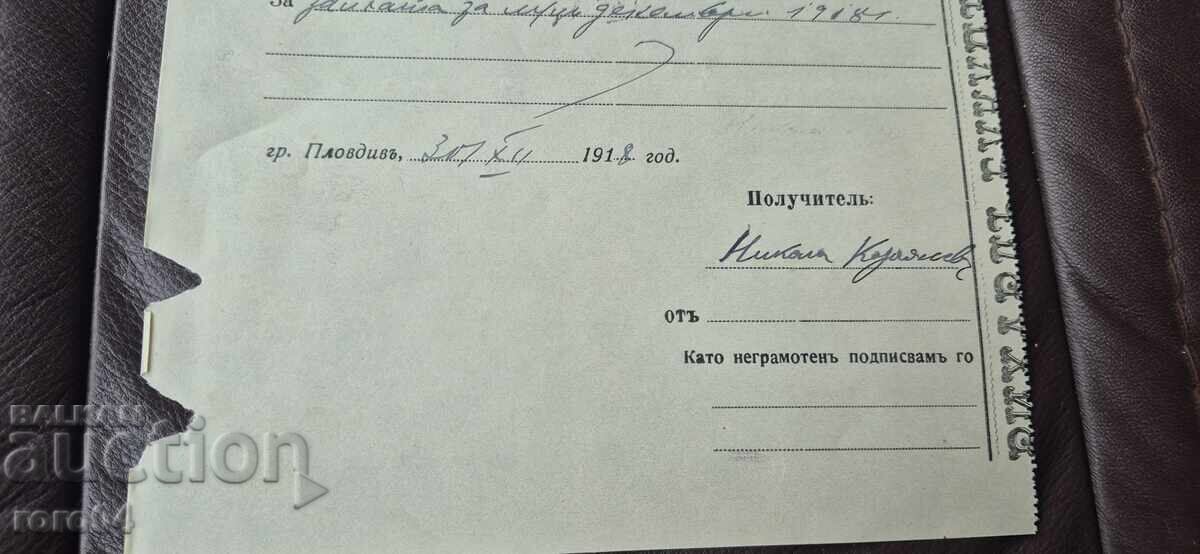 За заплата за м-ца декември 1918 г.
гр. Пловдивъ, 30/XII 1918 год.
Получитель:
Никола
отъ
Като неграмотенъ подписвамъ го
BALKAN
auction
roro14